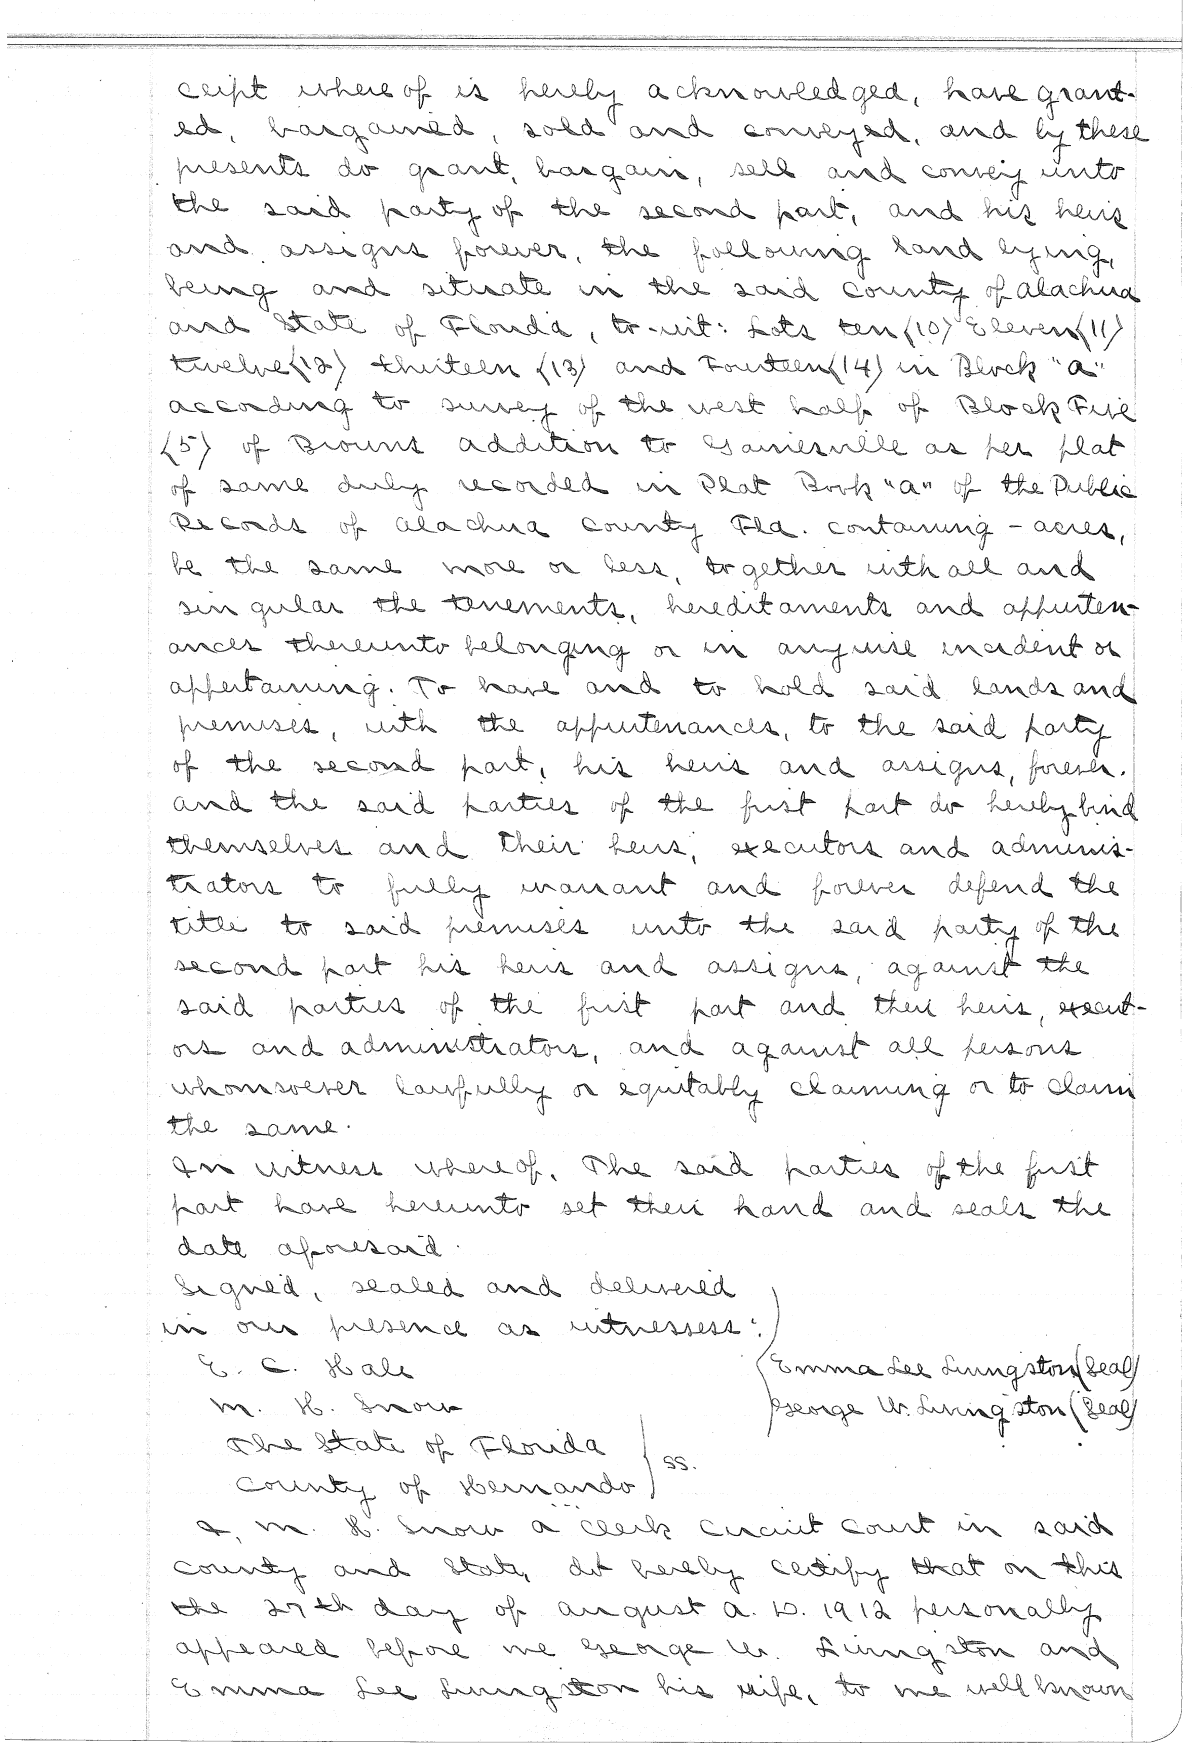 ceipt whereof is hereby acknowledged, have grant-
ed, bargained, sold and conveyed, and by these
presents do grant, bargain, sell and convey unto
the said party of the second part, and his heirs
and assigns forever, the following land lying,
being and situate in the said county of Alachua
and State of Florida, to-wit: Lots ten (10) Eleven (11)
twelve (12) thirteen (13) and Fourteen (14) in Block "A"
according to survey of the west half of Block Five
(5) of Browns addition to Gainesville as per plat
of same duly recorded in Plat Book "A" of the Public
Records of Alachua County Fla. containing - acres,
be the same more or less, together with all and
singular the tenements, hereditaments and appurten-
ances thereunto belonging or in anywise incident or
appertaining. To have and to hold said lands and
premises, with the appurtenances, to the said party
of the second part, his heirs and assigns, forever.
and the said parties of the first part do hereby bind
themselves and their heirs, executors and adminis-
trators to fully warrant and forever defend the
title to said premises unto the said party of the
second part his heirs and assigns, against the
said parties of the first part and their heirs, execut-
ors and administrators, and against all persons
whomsoever lawfully or equitably claiming or to claim
the same.
In witness whereof, The said parties of the first
part have hereunto set their hand and seals the
date aforesaid.
Signed, sealed and delivered
in our presence as witnessess:
E. C. Hale Emma Lee Livingston (Seal)
M. H. Snow George W. Livingston (Seal)
The State of Florida
County of Hernando ss.
I, M. H. Snow a Clerk Circuit Court in said
County and State, do hereby certify that on this
the 27th day of August A. D. 1912 personally
appeared before me George W. Livingston and
Emma Lee Livingston his wife, to me well known